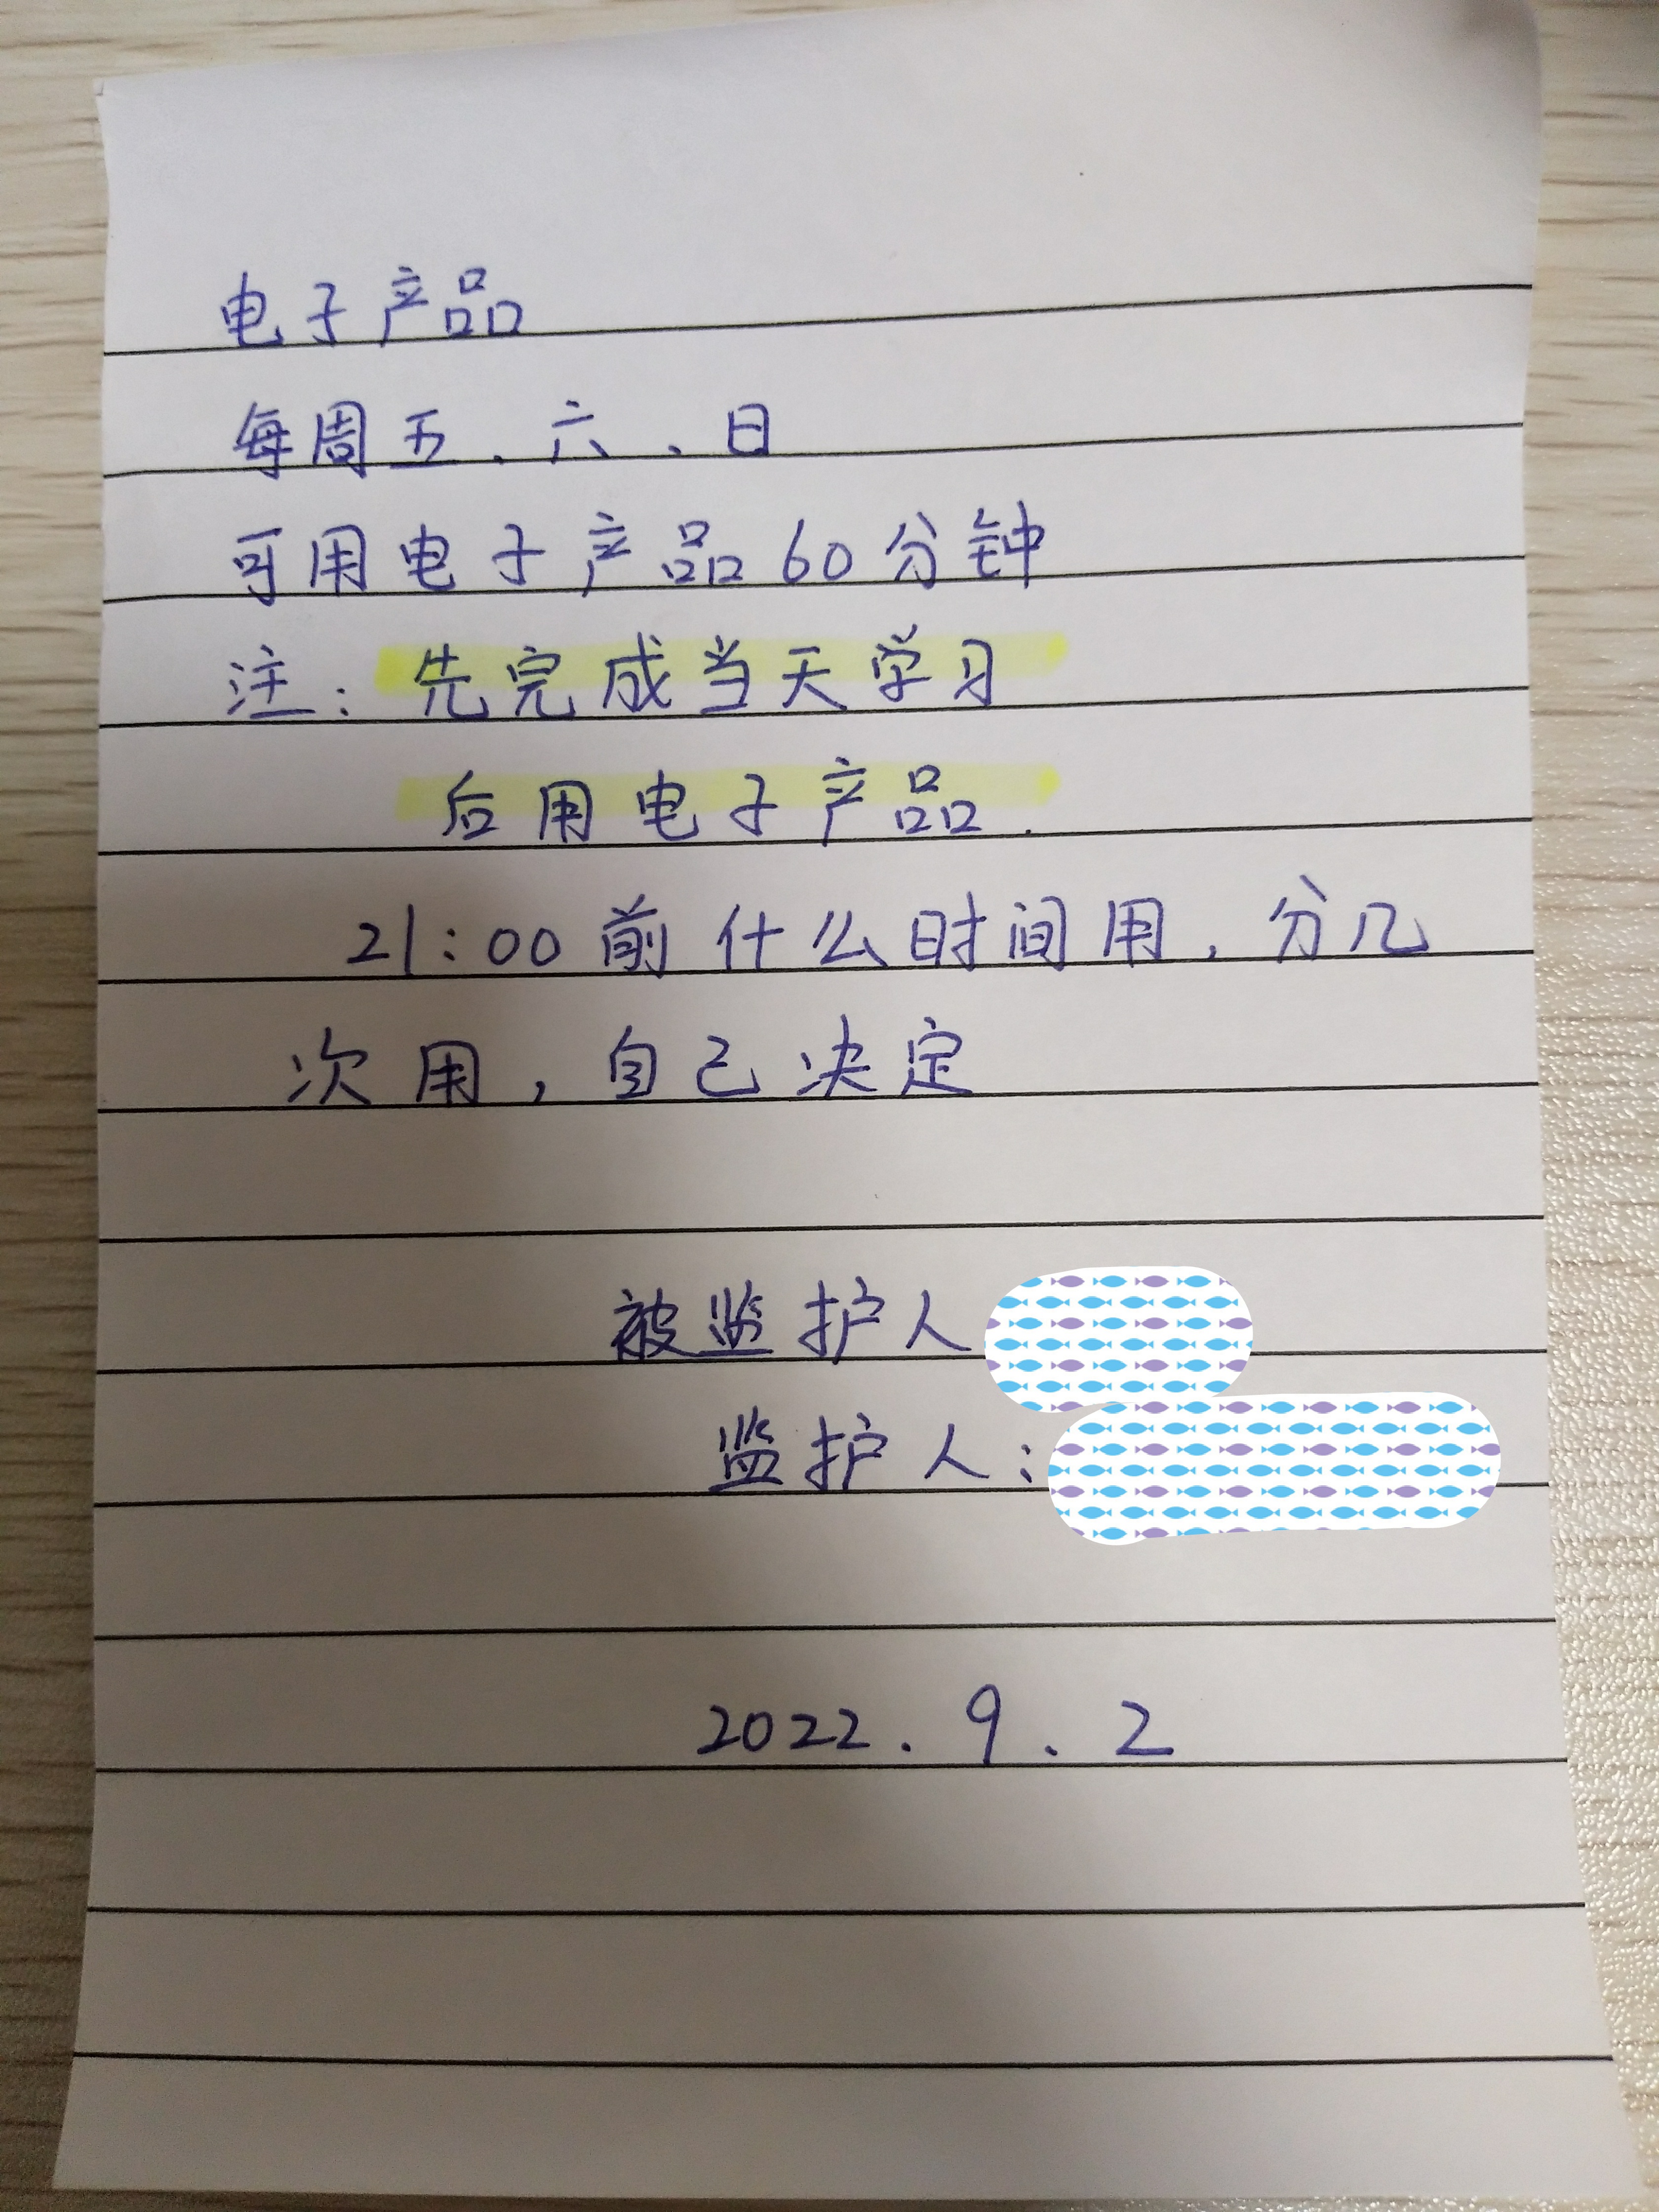 电子产品
每周五、六、日
可用电子产品60分钟
注：先完成当天学习
后用电子产品.
21:00前什么时间用，分几
次用，自己决定
被监护人
监护人：
2022.9.2